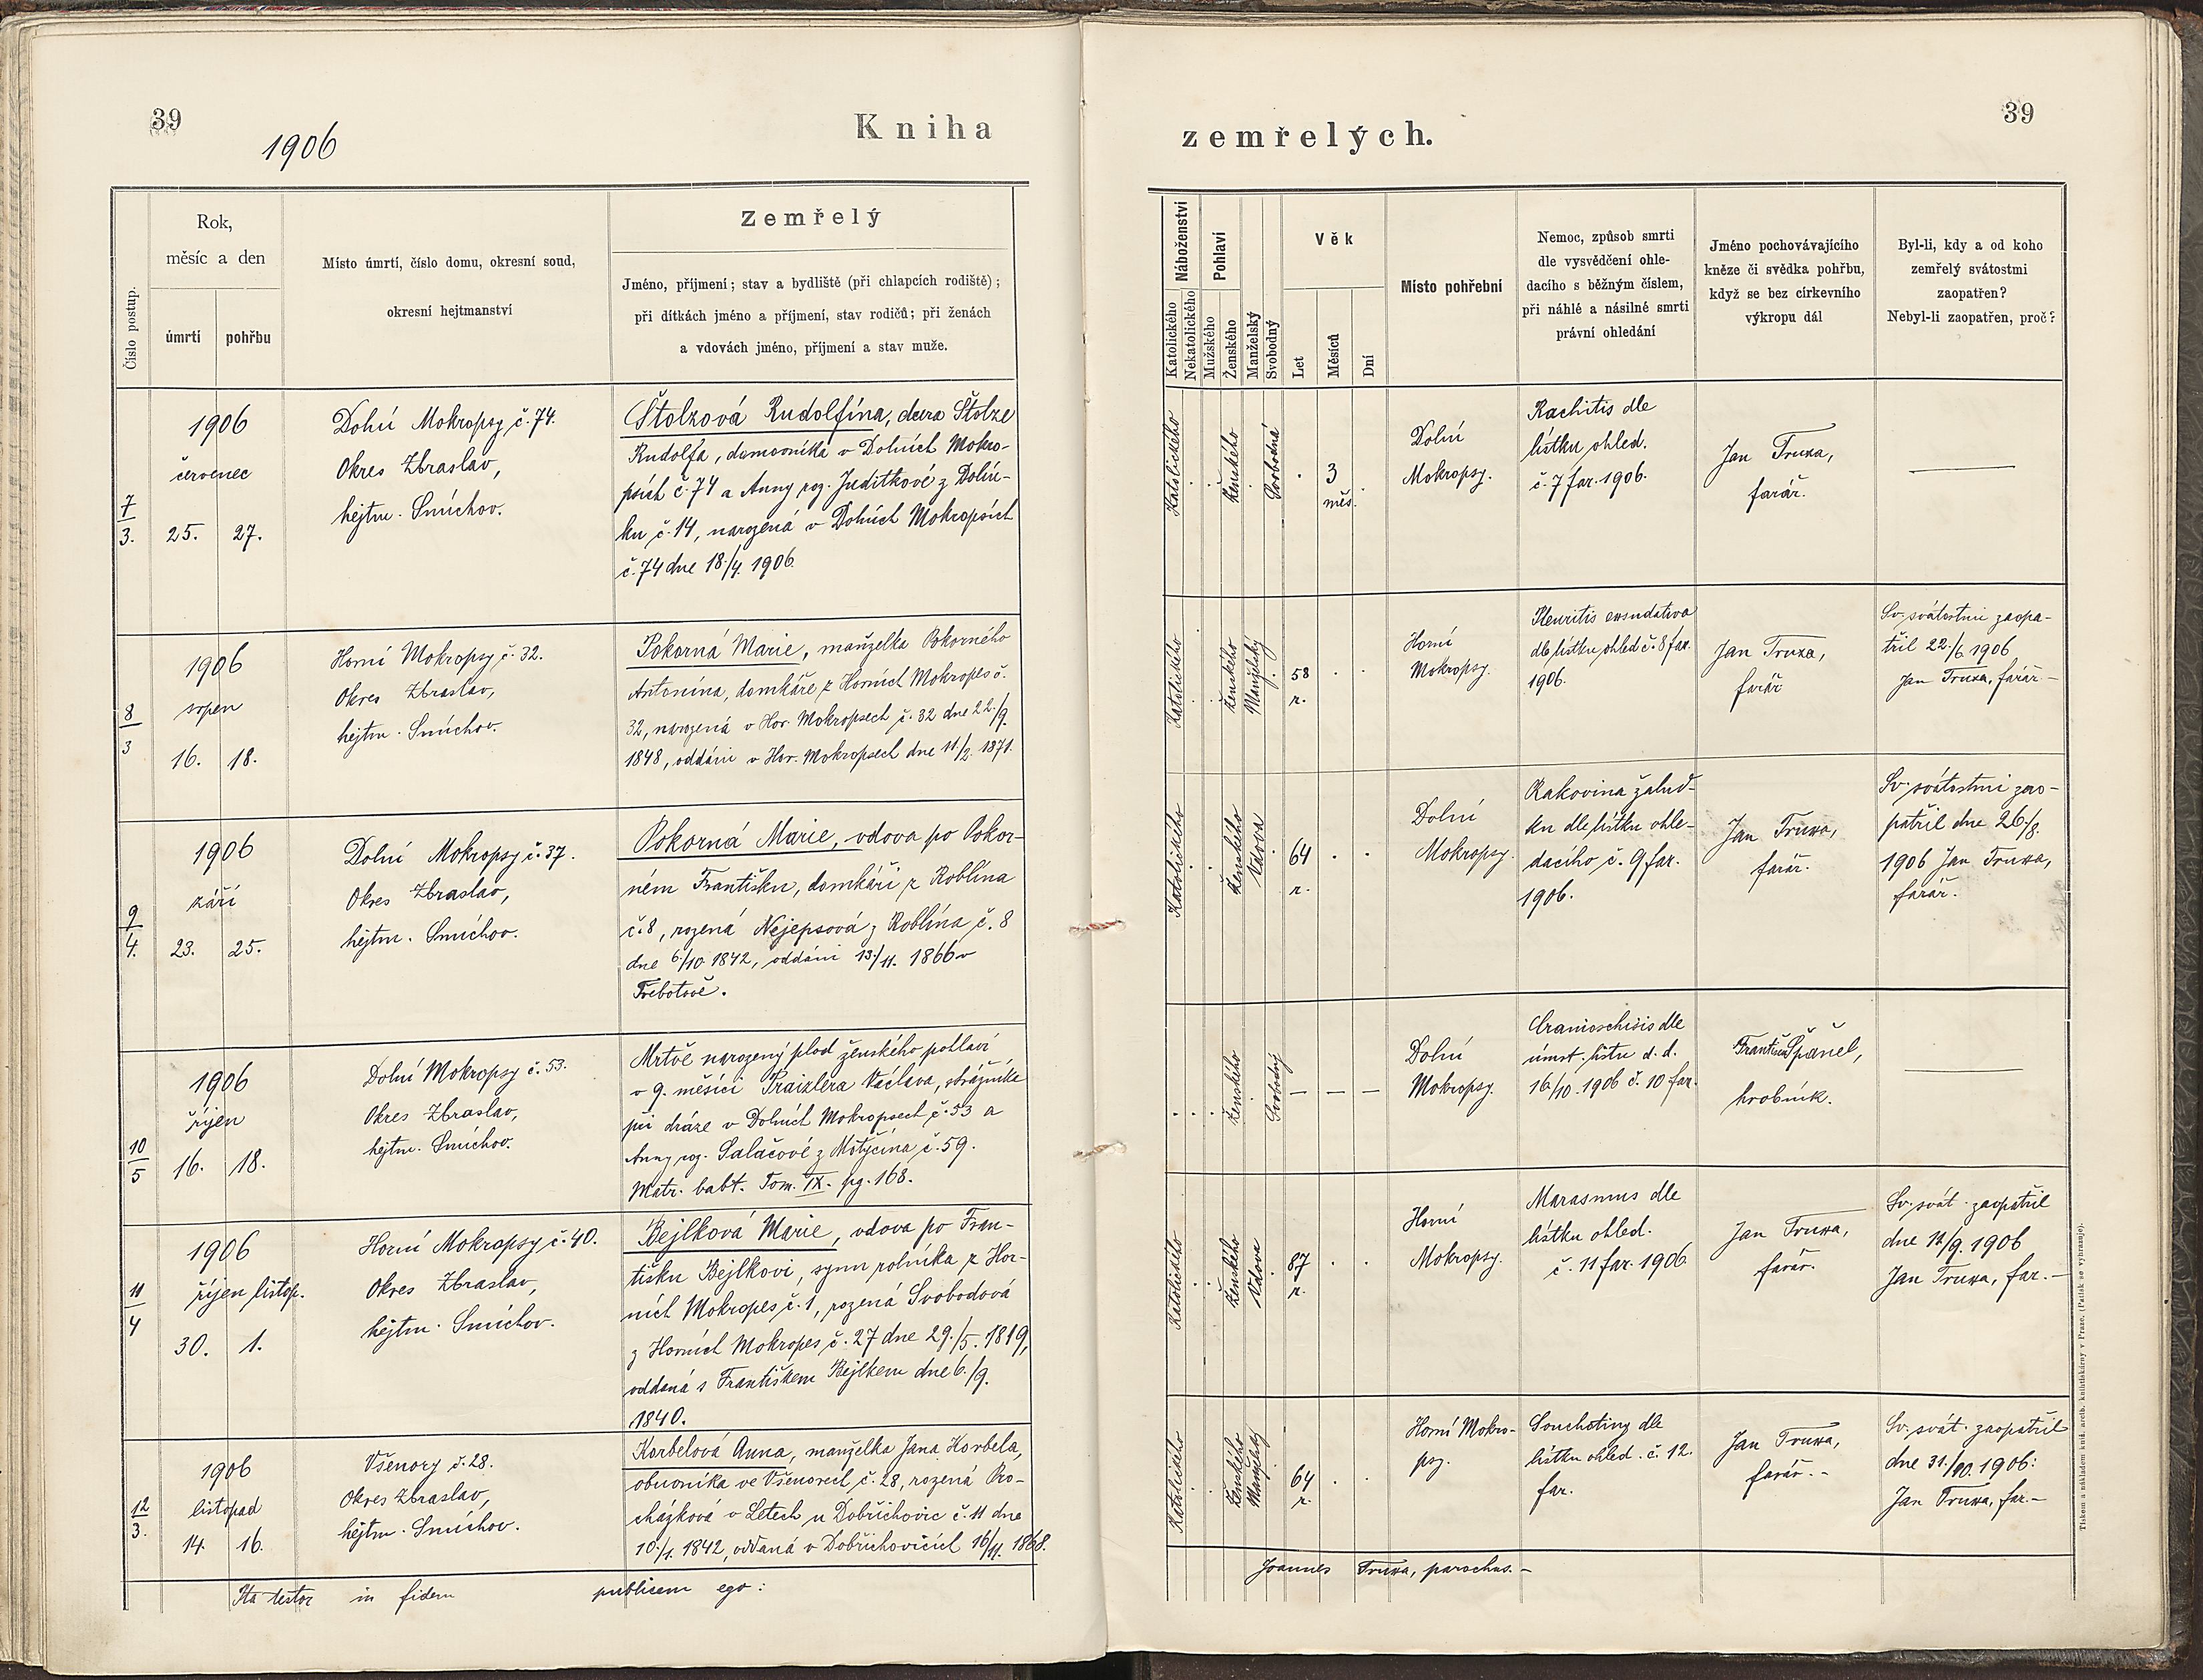 39
1906
Kniha
zemřelých.
39
Číslo postup.
Rok,
měsíc a den
úmrtí
pohřbu
Místo úmrtí, číslo domu, okresní soud,
okresní hejtmanství
Zemřelý
Jméno, příjmení; stav a bydliště (při chlapcích rodiště);
při dítkách jméno a příjmení, stav rodičů; při ženách
a vdovách jméno, příjmení a stav muže.
Náboženství
Katolického
Nekatolického
Pohlaví
Mužského
Ženského
Manželský
Svobodný
Věk
Let
Měsíců
Dní
Místo pohřební
Nemoc, způsob smrti
dle vysvědčení ohle-
dacího s běžným číslem,
při náhlé a násilné smrti
právní ohledání
Jméno pochovávajícího
kněze či svědka pohřbu,
když se bez církevního
výkropu dál
Byl-li, kdy a od koho
zemřelý svátostmi
zaopatřen?
Nebyl-li zaopatřen, proč?
7
3.
1906
červenec
25. 27.
Dolní Mokropsy č. 74.
Okres Zbraslav,
hejtm. Smíchov.
Štolzová Rudolfína, dcera Štolze
Rudolfa, domovníka v Dolních Mokro-
psích č. 74 a Anny roz. Juditkové z Dolín-
ku č. 14, narozená v Dolních Mokropsích
č. 74 dne 18./4. 1906.
Katolického
Ženského
Svobodná
3
měs.
Dolní
Mokropsy.
Rachitis dle
lístku ohled.
č. 7 far. 1906.
Jan Truxa,
farář.
8
3
1906
srpen
16. 18.
Horní Mokropsy č. 32.
Okres Zbraslav,
hejtm. Smíchov.
Pokorná Marie, manželka Pokorného
Antonína, domkáře z Horních Mokropes č.
32, narozená v Hor. Mokropsech č. 32 dne 22./9.
1848, oddáni v Hor. Mokropsech dne 11/2. 1871.
Katolického
Ženského
Manželský
58
r.
Horní
Mokropsy.
Pleuritis exsudativa
dle lístku ohled č. 8 far.
1906.
Jan Truxa,
farář
Sv. svátostmi zaopa-
třil 22./6. 1906,
Jan Truxa, farář.–
9
4.
1906
září
23. 25.
Dolní Mokropsy č. 37.
Okres Zbraslav,
hejtm. Smíchov.
Pokorná Marie, vdova po Pokor-
ném Františku, domkáři z Roblína
č. 8, rozená Nejepsová z Roblína č. 8
dne 6./10. 1842, oddáni 13./11. 1866 v
Třebotově.
Katolického
Ženského
Vdova
64
r.
Dolní
Mokropsy.
Rakovina žalud-
ku dle lístku ohle-
dacího č. 9 far.
1906.
Jan Truxa,
farář.
Sv. svátostmi zao-
patřil dne 26/8.
1906 Jan Truxa,
farář.
10
5
1906
říjen
16. 18.
Dolní Mokropsy č. 53.
Okres Zbraslav,
hejtm. Smíchov.
Mrtvě narozený plod ženského pohlaví
v 9. měsíci Traizlera Václava, strážníka
při dráze v Dolních Mokropsech č. 53 a
Anny roz. Salačové z Motyčína č. 59.
Matr. babt. Tom. IX. pg. 168.
Ženského
Svobodný
– – –
Dolní
Mokropsy.
Cranioschisis dle
úmrt. listu d. d.
16/10. 1906 č. 10 far.
František Špaňel,
hrobník.
11
4
1906
říjen listop.
30. 1.
Horní Mokropsy č. 40.
Okres Zbraslav,
hejtm. Smíchov.
Bejlková Marie, vdova po Fran-
tišku Bejlkovi, synu rolníka z Hor-
ních Mokropes č. 1, rozená Svobodová
z Horních Mokropes č. 27 dne 29./5. 1819,
oddaná s Františkem Bejlkem dne 6./9.
1840.
Katolického
Ženského
Vdova
87
r.
Horní
Mokropsy.
Marasmus dle
lístku ohled.
č. 11 far. 1906.
Jan Truxa,
farář.
Sv. svát. zaopatřil
dne 12/9. 1906
Jan Truxa, far.–
12
3.
1906
listopad
14. 16.
Všenory č. 28.
Okres Zbraslav,
hejtm. Smíchov.
Korbelová Anna, manželka Jana Korbela,
obuvníka ve Všenorech č. 28, rozená Pro-
cházková v Letech u Dobřichovic č. 11 dne
10./1. 1842, oddaná v Dobřichovicích 16/11. 1868.
Katolického
Ženského
Manželský
64
r.
Horní Mokro-
psy.
Souchotiny dle
lístku ohled. č. 12.
far.
Jan Truxa,
farář.–
Sv. svát. zaopatřil
dne 31./10. 1906:
Jan Truxa, far.–
Ita testor in fidem publicam ego:
Joannes Truxa, parochus.–
Tiskem a nákladem kníž. arcib. knihtiskárny v Praze. (Patisk se vyhrazuje).